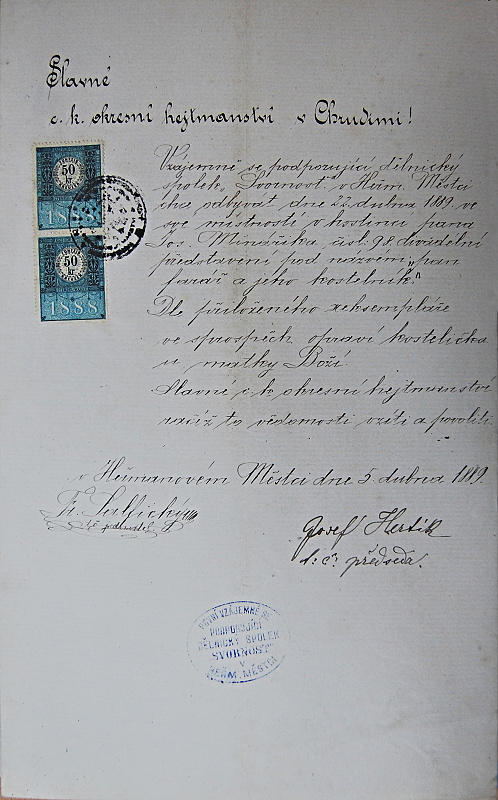 Slavné
c. k. okresní hejtmanství v Chrudimi!
50
kr
1888
50
kr
1888
Vzájemně se podpozující dělnický
spolek, Svornost v Heřm. Městci
chce odbývat dne 22. dubna 1889 ve
své místnosti v hostinci pana
Jos. Mináříka, čísl. 98. divadelní
představení pod názvem „pan
farář a jeho kostelník."
Dle přiloženého exempláře
ve prospěch opravi kostelíčka
u matky Boží.
Slavné c. k. okresní hejtmanství
račiž to vědomosti vzíti a povoliti.
v Heřmanovém Městci dne 5. dubna 1889.
Josef Hertik
t: č: předseda.
PRVNÍ VZÁJEMNĚ SE
PODPORUJÍCÍ
DĚLNICKÝ SPOLEK
SVORNOST
V
HEŘM. MĚSTCI